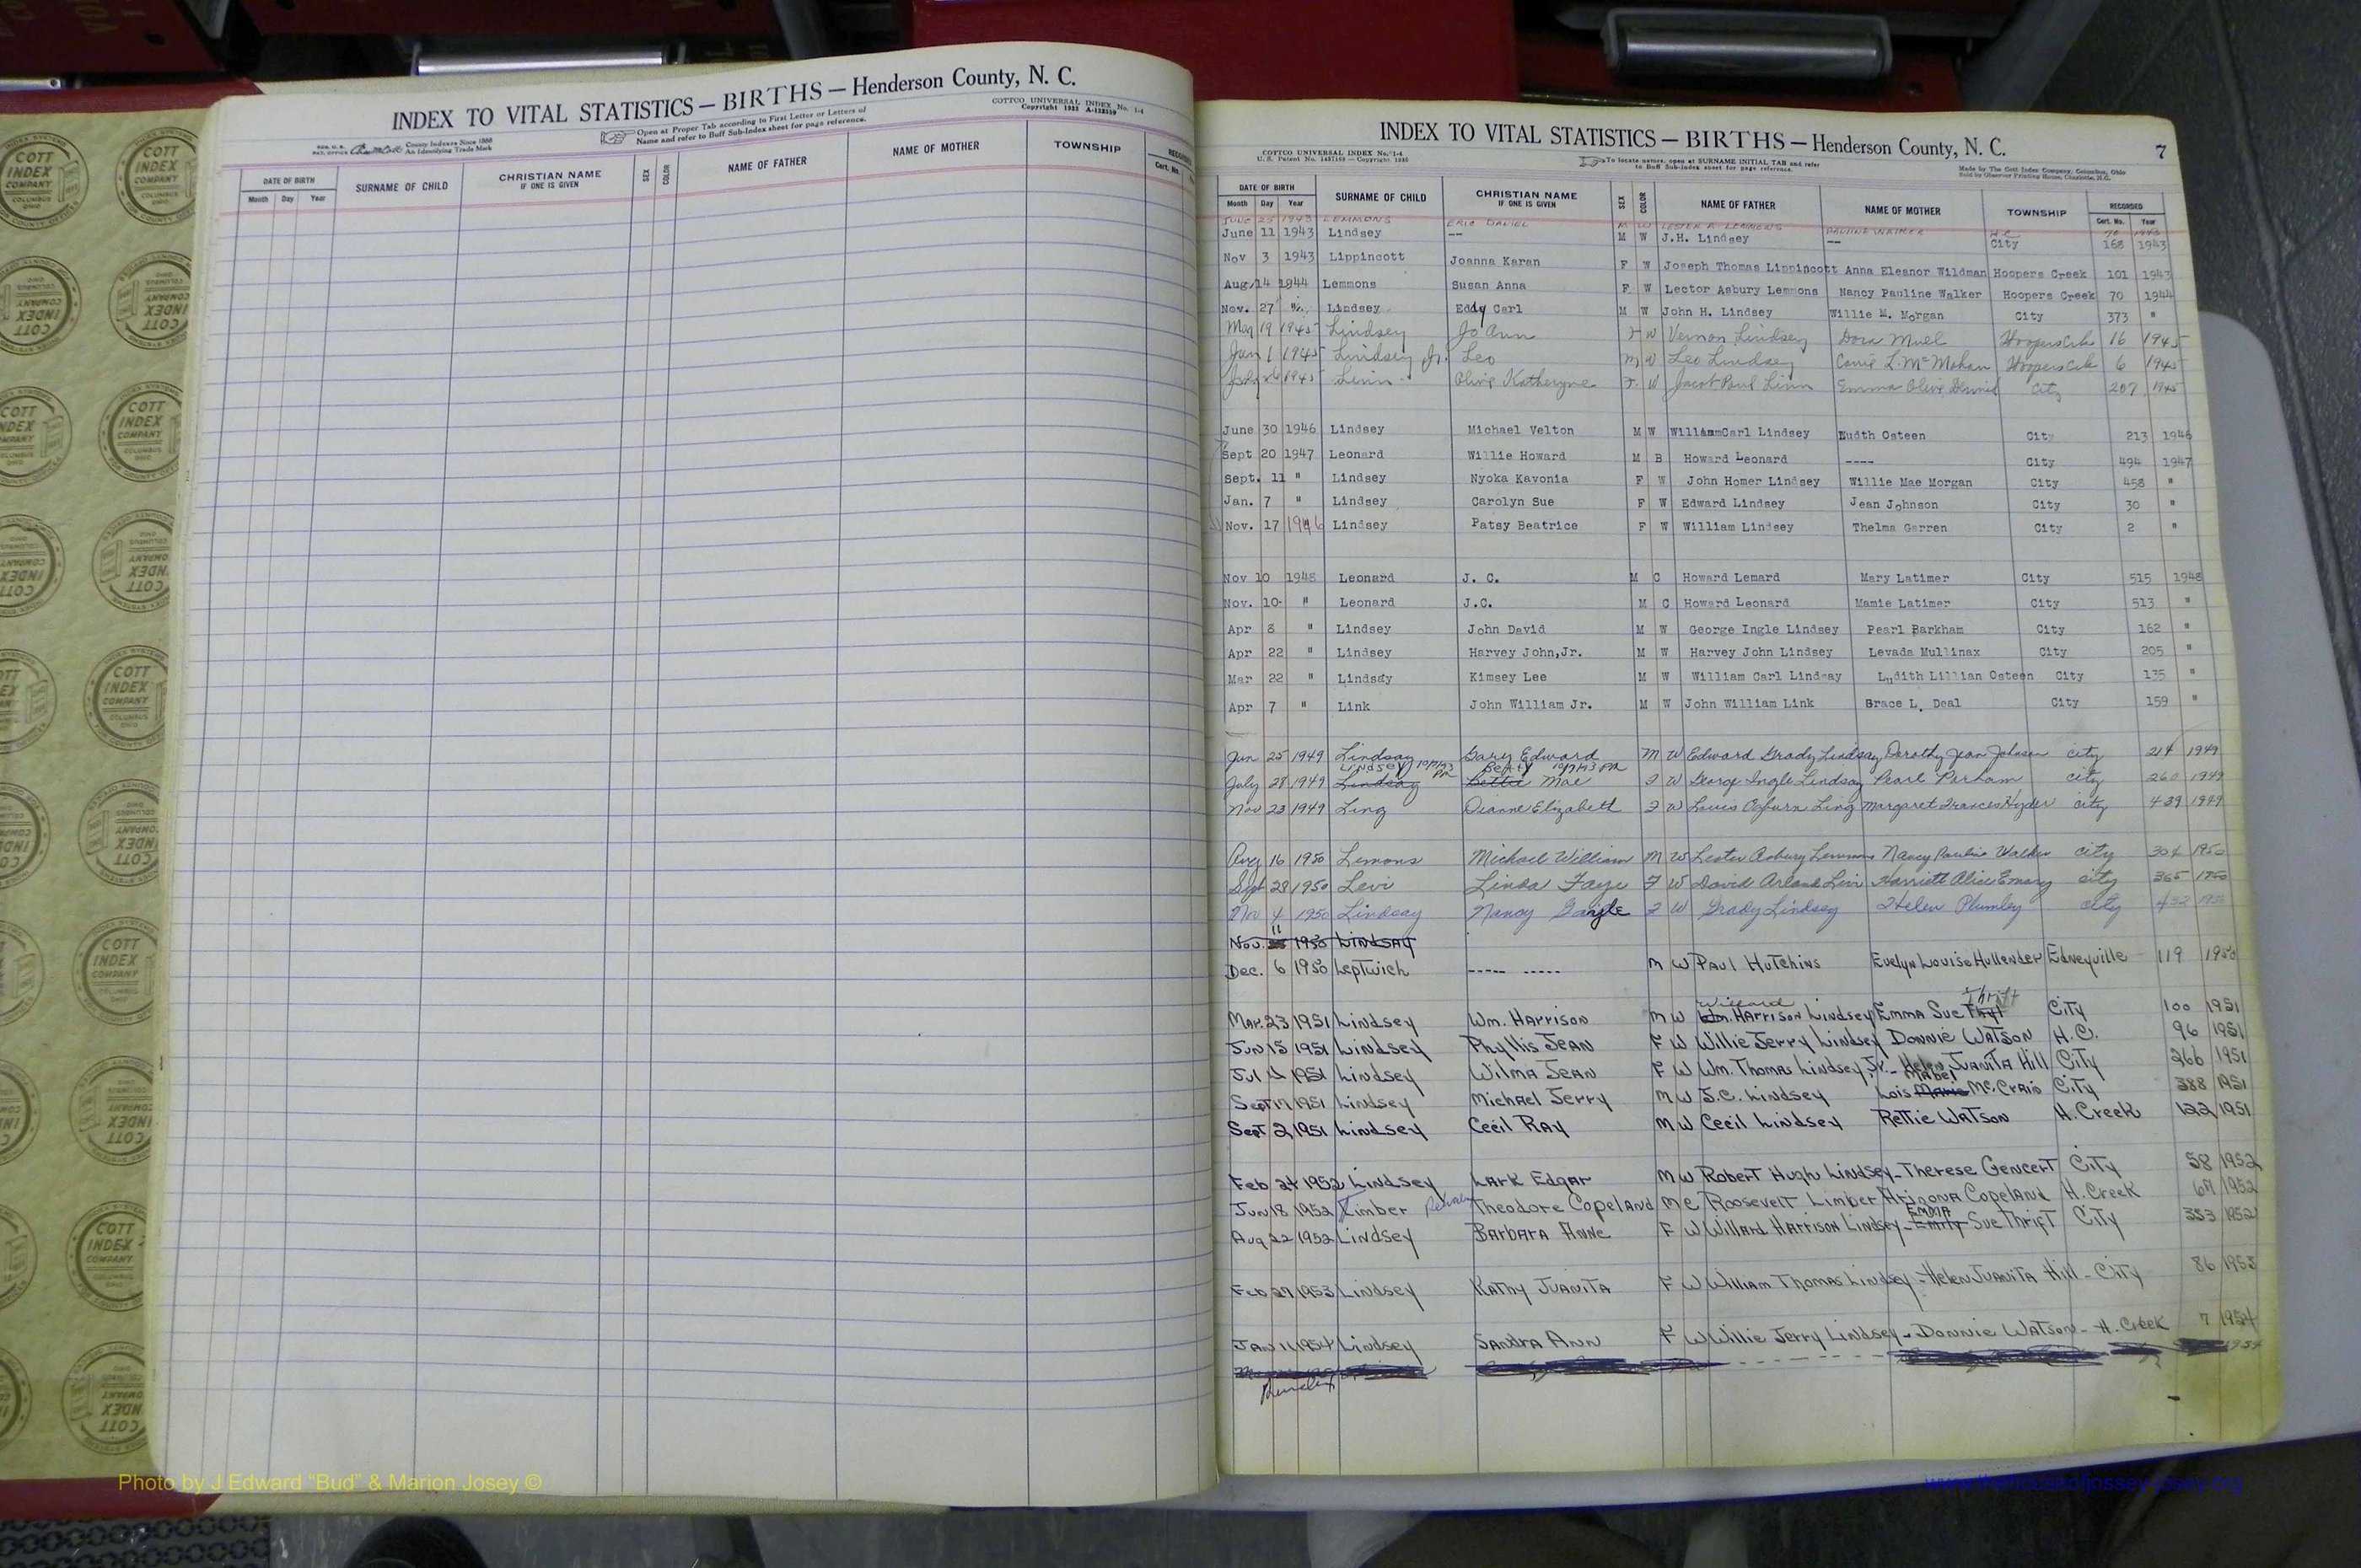 INDEX TO VITAL STATISTICS — BIRTHS — Henderson County, N. C.
COTTCO UNIVERSAL INDEX No. 1-4
Copyright 1935
County Indexes Since 1888
An Identifying Trade Mark
Open at Proper Tab according to First Letter or Letters of
Name and refer to Buff Sub-Index sheet for page reference.
DATE OF BIRTH SURNAME OF CHILD CHRISTIAN NAME IF ONE IS GIVEN SEX COLOR NAME OF FATHER NAME OF MOTHER TOWNSHIP
Month Day Year Cert. No.
INDEX TO VITAL STATISTICS — BIRTHS — Henderson County, N. C. 7
COTTCO UNIVERSAL INDEX No. 1-4
To locate names, open at SURNAME INITIAL TAB and refer
to Buff Sub-Index sheet for page reference.
Made by The Cott Index Company, Columbus, Ohio
Sold by Observer Printing House, Charlotte, N.C.
DATE OF BIRTH SURNAME OF CHILD CHRISTIAN NAME IF ONE IS GIVEN SEX COLOR NAME OF FATHER NAME OF MOTHER TOWNSHIP RECORDED
Month Day Year Cert. No. Year
JUNE 25 1943 LEMMONS ERIC DANIEL M W LESTER A LEMMONS PAULINE WALKER H C 1943
June 11 1943 Lindsey -- M W J.H. Lindsey -- City 168 1943
Nov 3 1943 Lippincott Joanna Karan F W Joseph Thomas Lippincott Anna Eleanor Wildman Hoopers Creek 101 1943
Aug. 14 1944 Lemmons Susan Anna F W Lector Asbury Lemmons Nancy Pauline Walker Hoopers Creek 70 1944
Nov. 27 Lindsey Eddy Carl M W John H. Lindsey Willie M. Morgan City 373 "
Mar 19 1945 Lindsey Jo Ann F W Vernon Lindsey Dora Hoopers Crk 16 1945
Jan 1 1945 Lindsey Jr. Leo M W Leo Lindsey L. McMahan Hoopers Crk 6 1945
July 26 1945 Linn Olive Katheryne F. W Jacob Paul Linn Emma Olive City 207 1945
June 30 1946 Lindsey Michael Velton M W WilliamCarl Lindsey Eudth Osteen City 213 1946
Sept 20 1947 Leonard Willie Howard M B Howard Leonard ---- City 494 1947
Sept. 11 " Lindsey Nyoka Kavonia F W John Homer Lindsey Willie Mae Morgan City 458 "
Jan. 7 " Lindsey Carolyn Sue F W Edward Lindsey Jean Johnson City 30 "
Nov. 17 1946 Lindsey Patsy Beatrice F W William Lindsey Thelma Garren City 2 "
Nov 10 1948 Leonard J. C. M C Howard Lemard Mary Latimer City 515 1948
Nov. 10- " Leonard J.C. M C Howard Leonard Mamie Latimer City 513 "
Apr 8 " Lindsey John David M W George Ingle Lindsey Pearl Barkham City 162 "
Apr 22 " Lindsey Harvey John,Jr. M W Harvey John Lindsey Levada Mullinax City 205 "
Mar 22 " Lindsay Kimsey Lee M W William Carl Lindsay Ludith Lillian Osteen City 135 "
Apr 7 " Link John William Jr. M W John William Link Brace L. Deal City 159 "
Jun 25 1949 Lindsay Gary Edward M W Edward Grady Lindsay Dorothy Jean Johnson city 214 1949
Lindsey Betty
July 28 1949 Lindsay Bettie Mae F W George Ingle Lindsay Pearl Parham city 260 1949
Nov 23 1949 Ling Dianne Elizabeth F W Louis Ogburn Ling Margaret Frances Hyder city 439 1949
Aug 16 1950 Lemons Michael William M W Lester Asbury Lemmons Nancy Pauline Walker city 304 1950
Sept 28 1950 Levi Linda Faye F W David Arland Levi Harriett Alice Emory city 365 1950
Nov 4 1950 Lindsay Nancy Gaigle F W Grady Lindsey Helen Plumley city 432 1950
Nov. 11 1950 Lindsay
Dec. 6 1950 Leptwich ----- ----- M W Paul Hutchins Evelyn Louise Hullender Edneyville 119 1950
Willard Thrift
Mar. 23 1951 Lindsey Wm. Harrison M W Wm. Harrison Lindsey Emma Sue City 100 1951
Jun 15 1951 Lindsey Phyllis Jean F W Willie Jerry Lindsey Donnie Watson H.C. 96 1951
Jul 1951 Lindsey Wilma Jean F W Wm. Thomas Lindsey, Jr. - Helen Juanita Hill City 266 1951
Mabel
Sept 17 1951 Lindsey Michael Jerry M W J.C. Lindsey Lois McCraid City 388 1951
Sept 2 1951 Lindsey Cecil Ray M W Cecil Lindsey Rettie Watson H. Creek 122 1951
Feb 24 1952 Lindsey Lark Edgar M W Robert Hugh Lindsey - Therese Gencert City 58 1952
Jun 18 1952 Limber Theodore Copeland M C Roosevelt Limber Arizona Copeland H. Creek 67 1952
Emma
Aug 22 1952 Lindsey Barbara Anne F W Willard Harrison Lindsey - Emily Sue Thrift City 353 1952
Feb 27 1953 Lindsey Kathy Juanita F W William Thomas Lindsey - Helen Juanita Hill - City 86 1953
Jan 11 1954 Lindsey Sandra Ann F W Willie Jerry Lindsey - Donnie Watson - H. Creek 7 1954
1954
COTT INDEX COMPANY COLUMBUS OHIO
Photo by J Edward “Bud” & Marion Josey ©
www.thehouseofjossey-josey.org